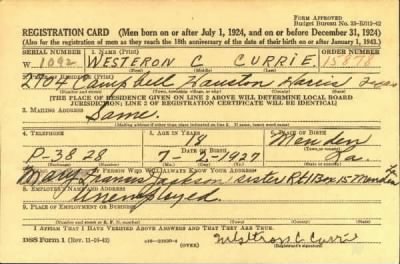 FORM APPROVED
Budget Bureau No. 33-R012-42
REGISTRATION CARD (Men born on or after July 1, 1924, and on or before December 31, 1924)
(Also for the registration of men as they reach the 18th anniversary of the date of their birth on or after January 1, 1943.)
SERIAL NUMBER 1. NAME (Print) ORDER NUMBER
W 1092 WESTERON C CURRIE 15878
(First) (Middle) (Last)
2. PLACE OF RESIDENCE (Print)
2104 Campbell Houston Harris Texas
(Number and street) (Town, township, village, or city) (County) (State)
[THE PLACE OF RESIDENCE GIVEN ON LINE 2 ABOVE WILL DETERMINE LOCAL BOARD
JURISDICTION; LINE 2 OF REGISTRATION CERTIFICATE WILL BE IDENTICAL]
3. MAILING ADDRESS
Same.
[Mailing address if other than place indicated on line 2. If same, insert word same]
4. TELEPHONE 5. AGE IN YEARS 6. PLACE OF BIRTH
18 Menden
DATE OF BIRTH
P-3828 7-2-1927 La.
(Exchange) (Number) (Mo.) (Day) (Yr.) (State or country)
7. NAME AND ADDRESS OF PERSON WHO WILL ALWAYS KNOW YOUR ADDRESS
Mary Jackson sister Rt 1 Box 15 Menden La
8. EMPLOYER'S NAME AND ADDRESS
Unemployed.
9. PLACE OF EMPLOYMENT OR BUSINESS
(Number and street or R. F. D. number) (Town) (County) (State)
I AFFIRM THAT I HAVE VERIFIED ABOVE ANSWERS AND THAT THEY ARE TRUE.
DSS Form 1 (Rev. 11-16-42) (OVER) Westron C. Currie
(Registrant's signature)